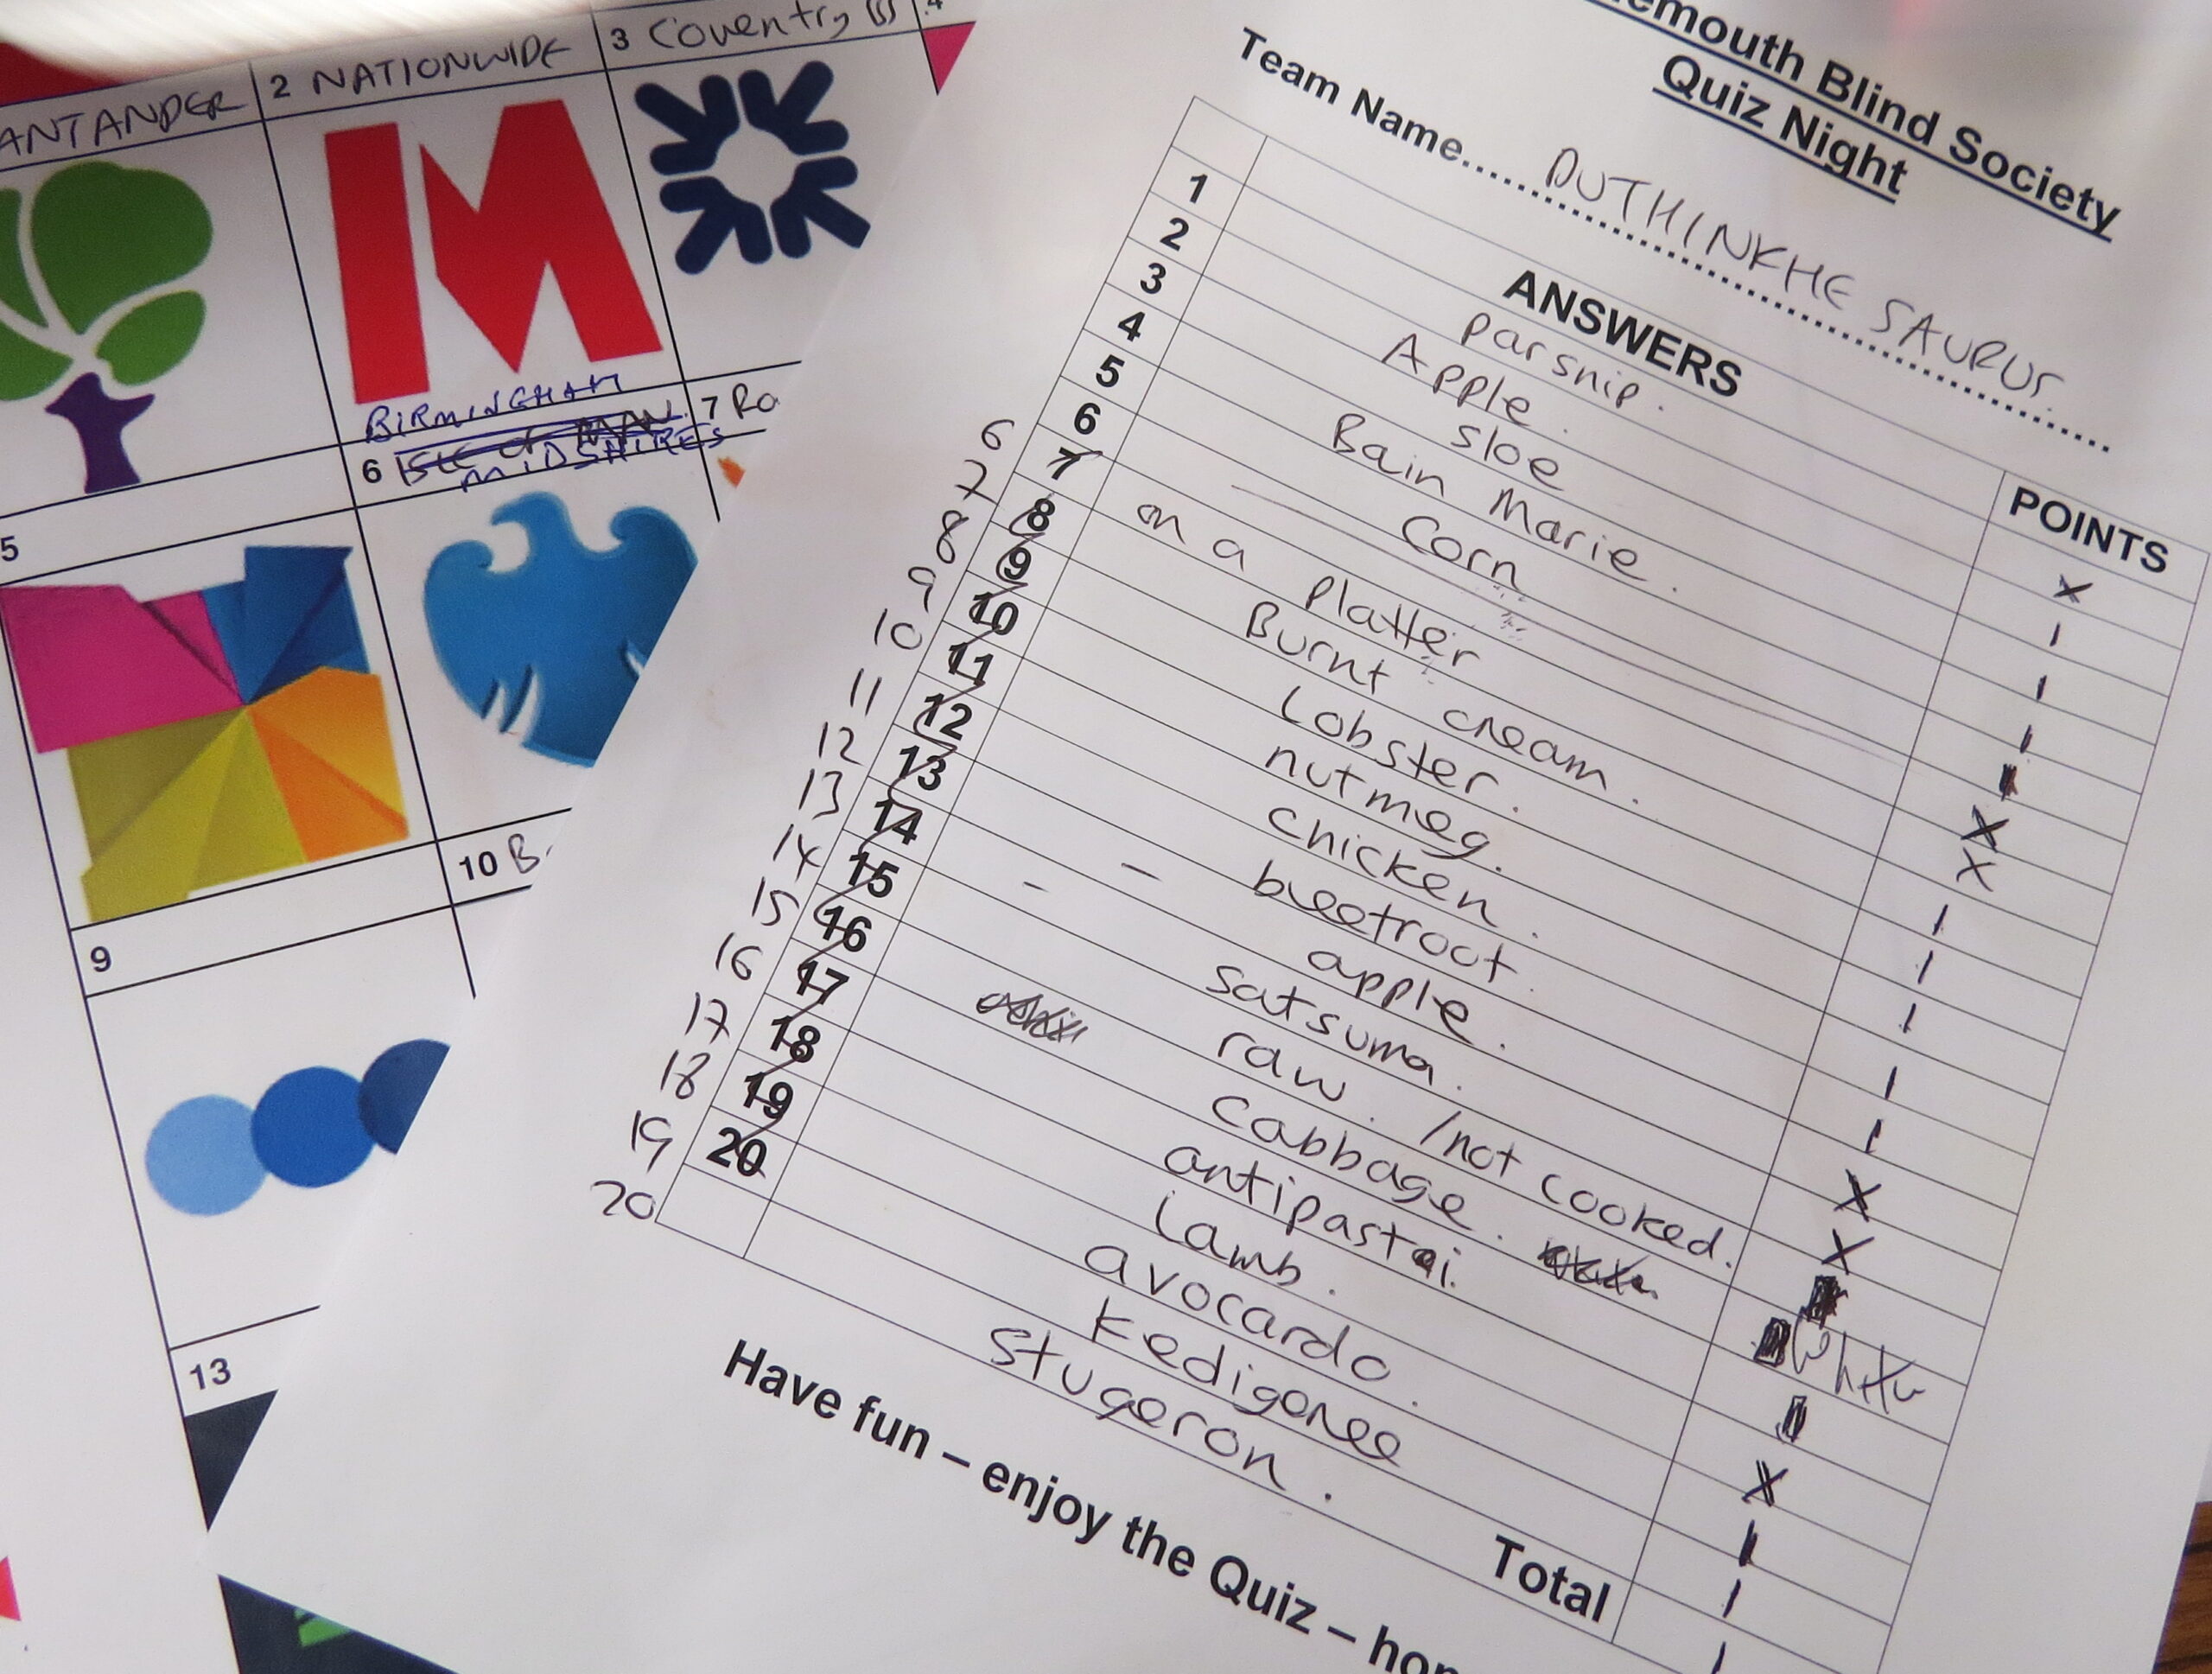 ANTANDER
2 NATIONWIDE
3 Coventry BS
4
5
BIRMINGHAM
6 Isle of MAN
MIDSHIRES
7 Ro
9
10 B
13
emouth Blind Society
Quiz Night
Team Name DUTHINKHE SAURUS
ANSWERS POINTS
1 parsnip. x
2 Apple. 1
3 sloe 1
4 Bain Marie. 1
5 Corn
6
6 7 on a platter x
7 8 Burnt cream. x
8 9 Lobster. 1
9 10 nutmeg. 1
10 11 chicken. 1
11 12 - beetroot. 1
12 13 - apple. 1
13 14 satsuma. x
14 15 raw. /not cooked. x
15 16 cabbage.
16 17 antipasti.
17 18 lamb. x
18 19 avocardo. 1
19 20 kedigeree 1
20 Stugeron. 1
Total
Have fun – enjoy the Quiz – hop